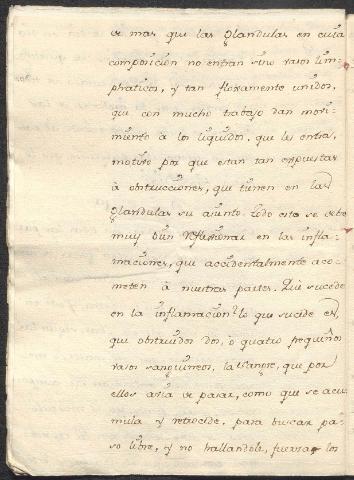 se mas que las glandulas en cuia
composicion no entran sino vasos lim-
phaticos, y tan floxamente unidos,
que con mucho trabajo dan movi-
miento à los liquidos, que les entra,
motivo por que estan tan expuestas
à obstrucciones, que tienen en las
glandulas su asiento. todo esto se debe
muy bien reflexionar en las infla-
maciones, que accidentalmente aco-
meten à nuestras partes. Que sucede
en la inflamacion? lo que sucede es,
que obstruidos dos, ò quatro pequeños
vasos sanguineos, la sangre, que por
ellos avia de pasar, como que se acu-
mula y retrocede, para buscar pa-
so libre, y no hallandole, fuerza los